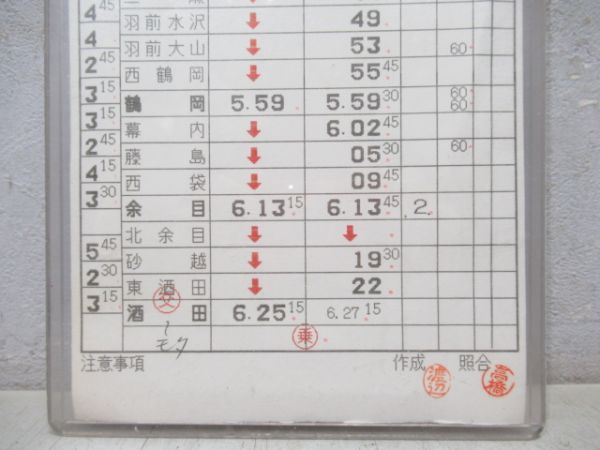 4 45
羽前水沢 ↓ 49
4
羽前大山 ↓ 53 60
2 45
西鶴岡 ↓ 55 45
3 15
鶴岡 5.59 5.59 30 60 60
3 15
幕内 ↓ 6.02 45
2 45
藤島 ↓ 05 30 60
4 15
西袋 ↓ 09 45
3 30
余目 6.13 15 6.13 45 2
北余目 ↓ ↓
5 45
砂越 ↓ 19 30
2 30
東酒田 ↓ 22
3 15
酒田 6.25 15 6.27 15
交
〜
モタ
乗
注意事項 作成 渡辺 照合 高橋